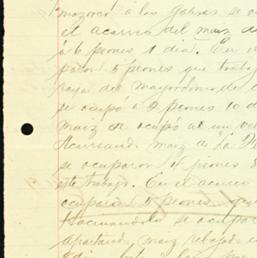 mazorca á las galeras se oc
el acarreo del maiz de
á 6 peones 1 dia. En el
paron 5 peones que trabaj
raya del mayordomo, de c
se ocupó á 5 peones 10 d
maiz se ocupó á un
Acarreando maiz de La
se ocuparon 4 peones 8
este trabajo. En el acarreo
ocuparon 5 peones
Hacinandolo se ocupar
apartando maiz rebajado